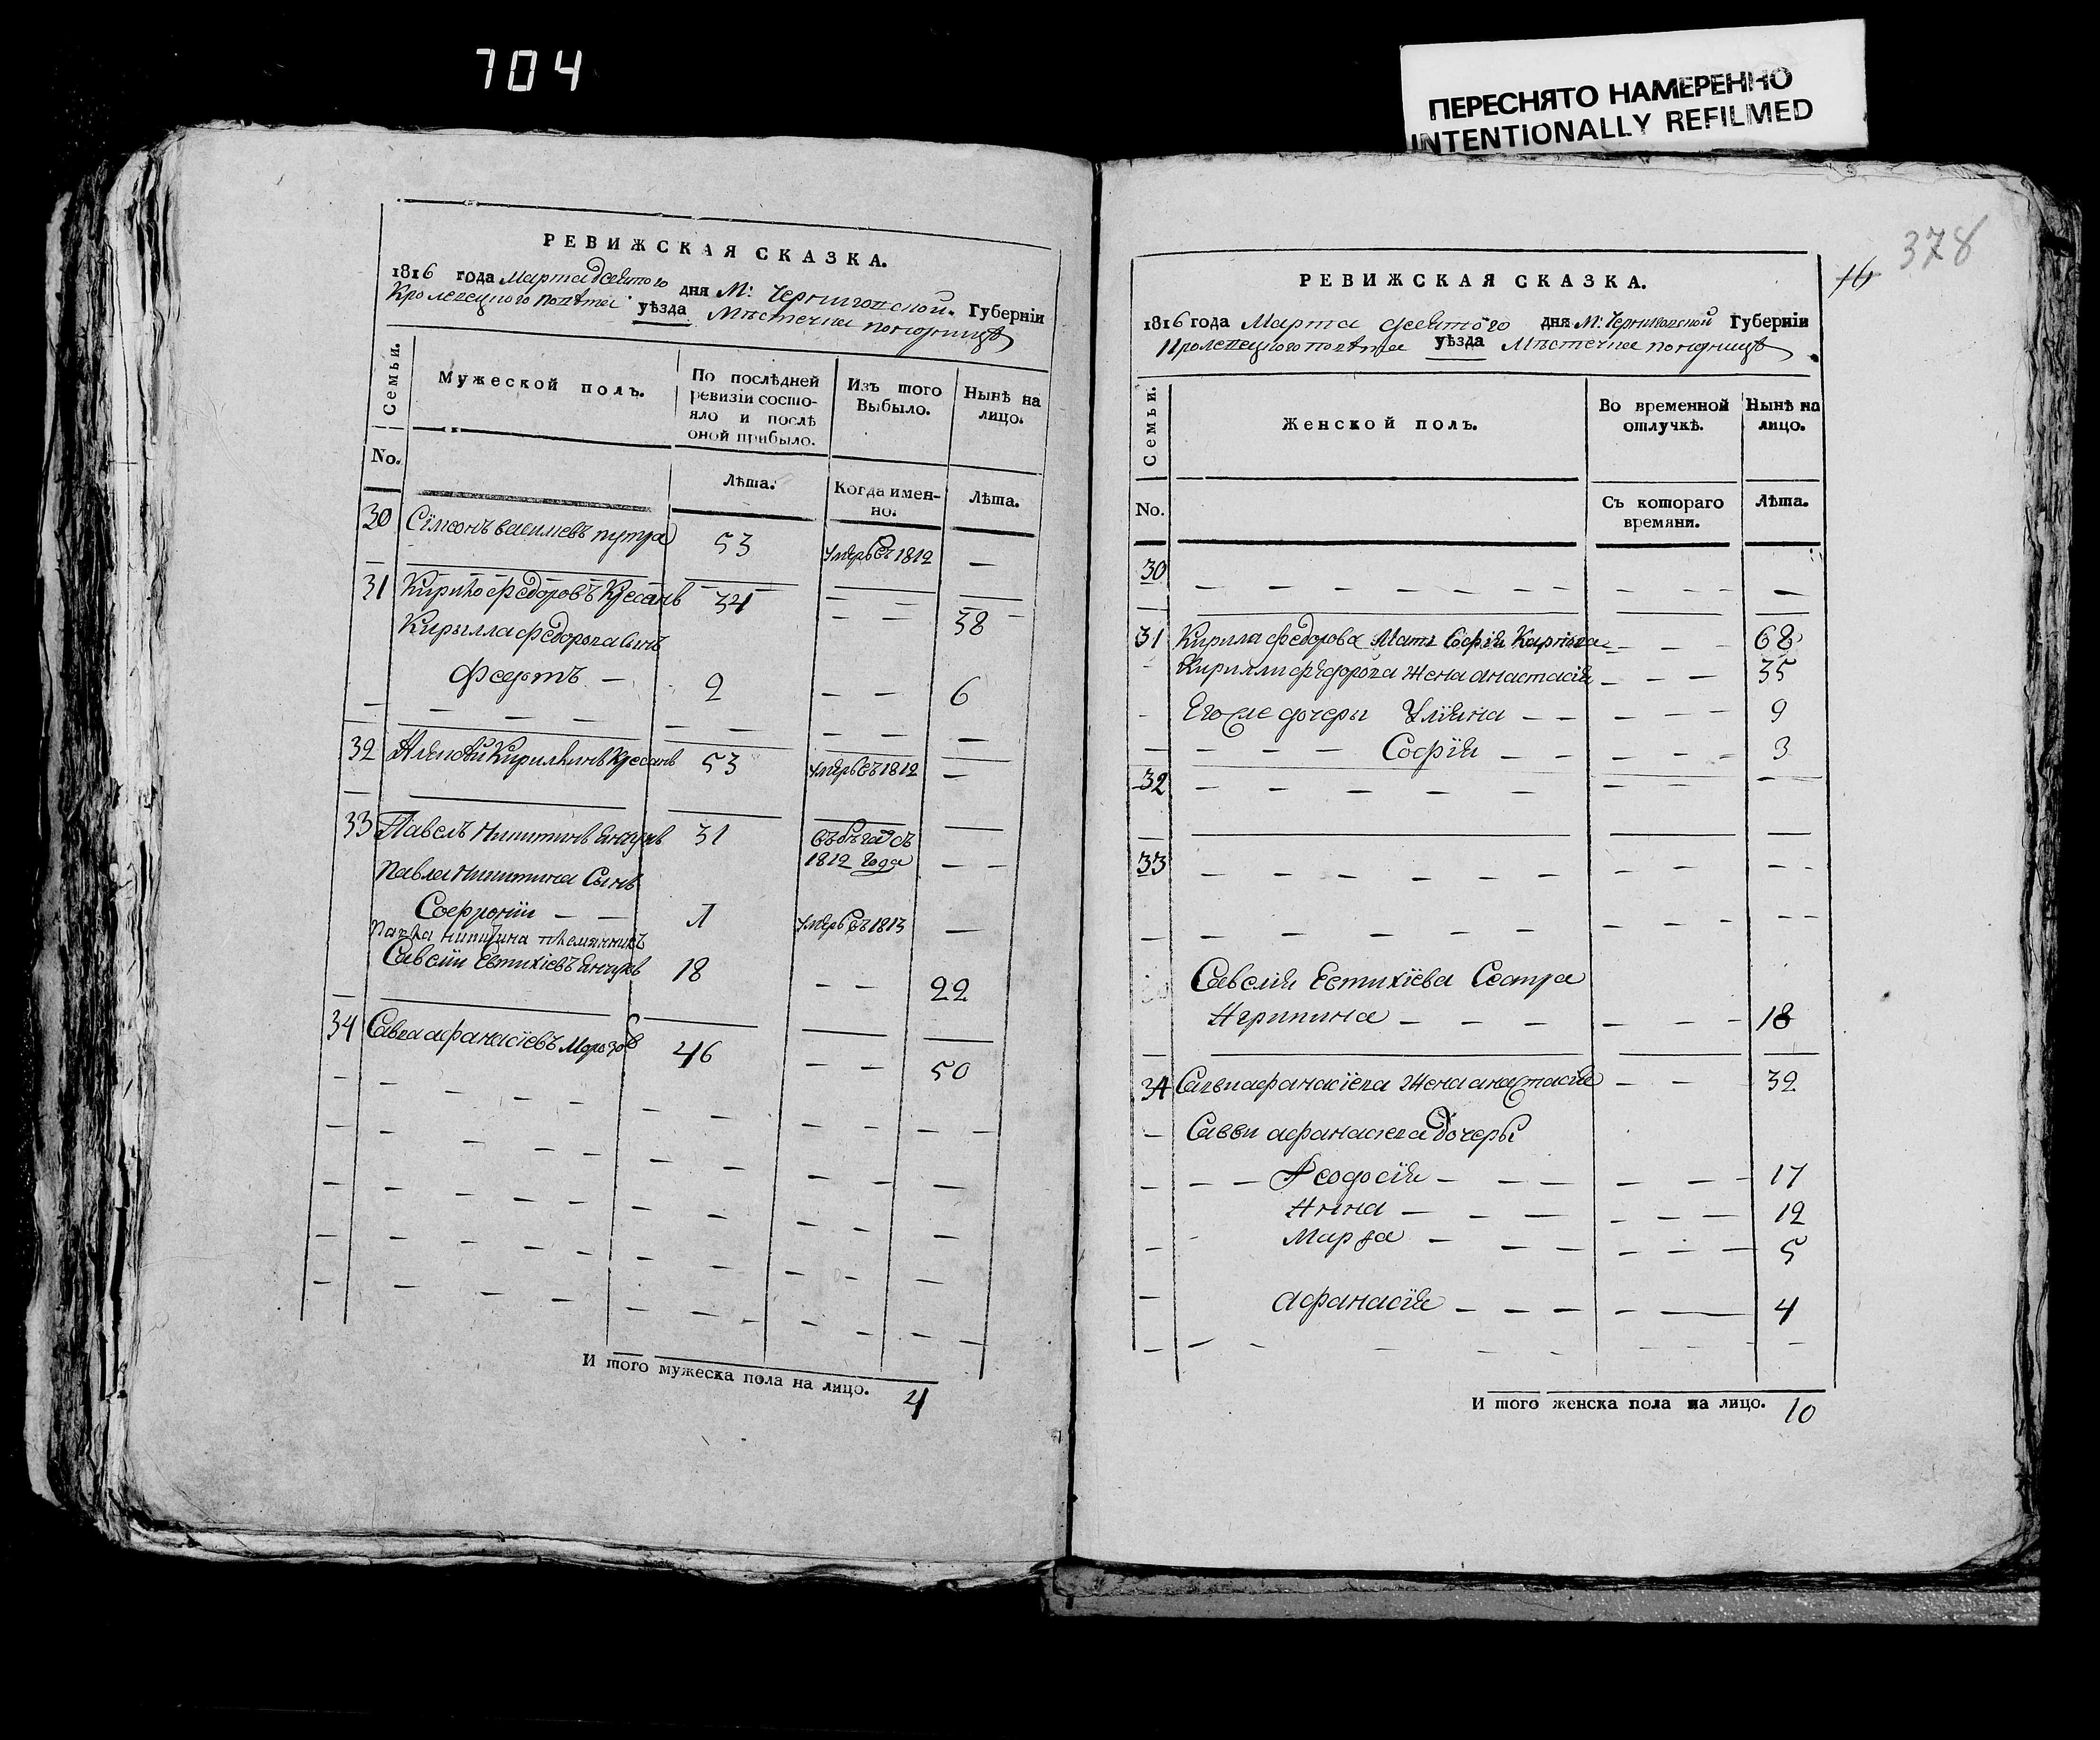 704
ПЕРЕСНЯТО НАМЕРЕННО
INTENTIONALLY REFILMED
378
16
РЕВИЖСКАЯ СКАЗКА.
1816 года Марта девятого дня М: Черниговской Губерніи
Кролевецкого повѣта уѣзда Мѣстечка
Семьи.
Мужеской полъ.
По послѣдней ревизіи состояло и послѣ оной прибыло.
Изъ того Выбыло.
Нынѣ на лицо.
No.
Лѣта.
Когда именно.
Лѣта.
30 Сімеонъ василіевъ 53 умеръ въ 1812 —
31 Кирило федоровъ 34 — — 38
Кирылла федорова сынъ
федотъ — 2 — — 6
32 Кириловъ 53 умеръ въ 1812 —
33 Павелъ Никитинъ 31 въ бѣгахъ съ
1812 года — —
Павла Никитина Сынъ
Софроній — — умеръ въ 1813 —
Павла Никитина племянникъ
Савелій Евтихіевъ 18 — — 22
34 Савва афанасіевъ Морозовъ 46 — — 50
И того мужеска пола на лицо. 4
РЕВИЖСКАЯ СКАЗКА.
1816 года Марта девятого дня М: Черниговской Губерніи
Кролевецкого повѣта уѣзда Мѣстечка
Семьи.
Женской полъ.
Во временной отлучкѣ.
Нынѣ на лицо.
No.
Съ котораго времяни.
Лѣта.
30 — — — — — —
31 Кирила федорова Мать Софія Карпова — — 68
Кирилли федорова жена анастасія — — — 35
Его же дочери Уліяна — — — — — 9
Софія — — — — 3
32 — — — — —
33 — — — — — —
Савелія Евтихіева Сестра
Агрипина — — — — — 18
34 Саввы афанасіева жена анастасія — — 32
Савви афанасіева дочеры
Феодосія — — — — — 17
Анна — — — — — 12
Марѳа — — — — — 5
афанасія — — — — — 4
И того женска пола на лицо. 10